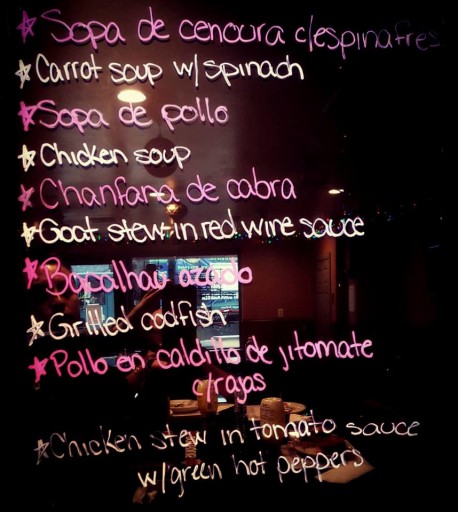 Sopa de cenoura c/espinafres
Carrot soup w/spinach
Sopa de pollo
Chicken soup
Chanfana de cabra
Goat stew in red wine sauce
Bacalhau azado
Grilled codfish
Pollo en caldillo de jitomate
c/rajas
Chicken stew in tomato sauce
w/green hot peppers